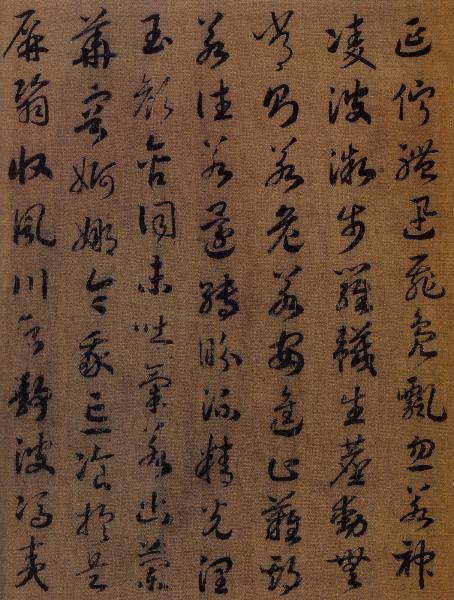 延佇體迅飛鳧飄忽若神
凌波微步羅韈生塵動無
常則若危若安進止難期
若往若還轉眄流精光潤
玉顏含詞未吐氣若幽蘭
華容婀娜令我忘飡於是
屏翳收風川后靜波馮夷